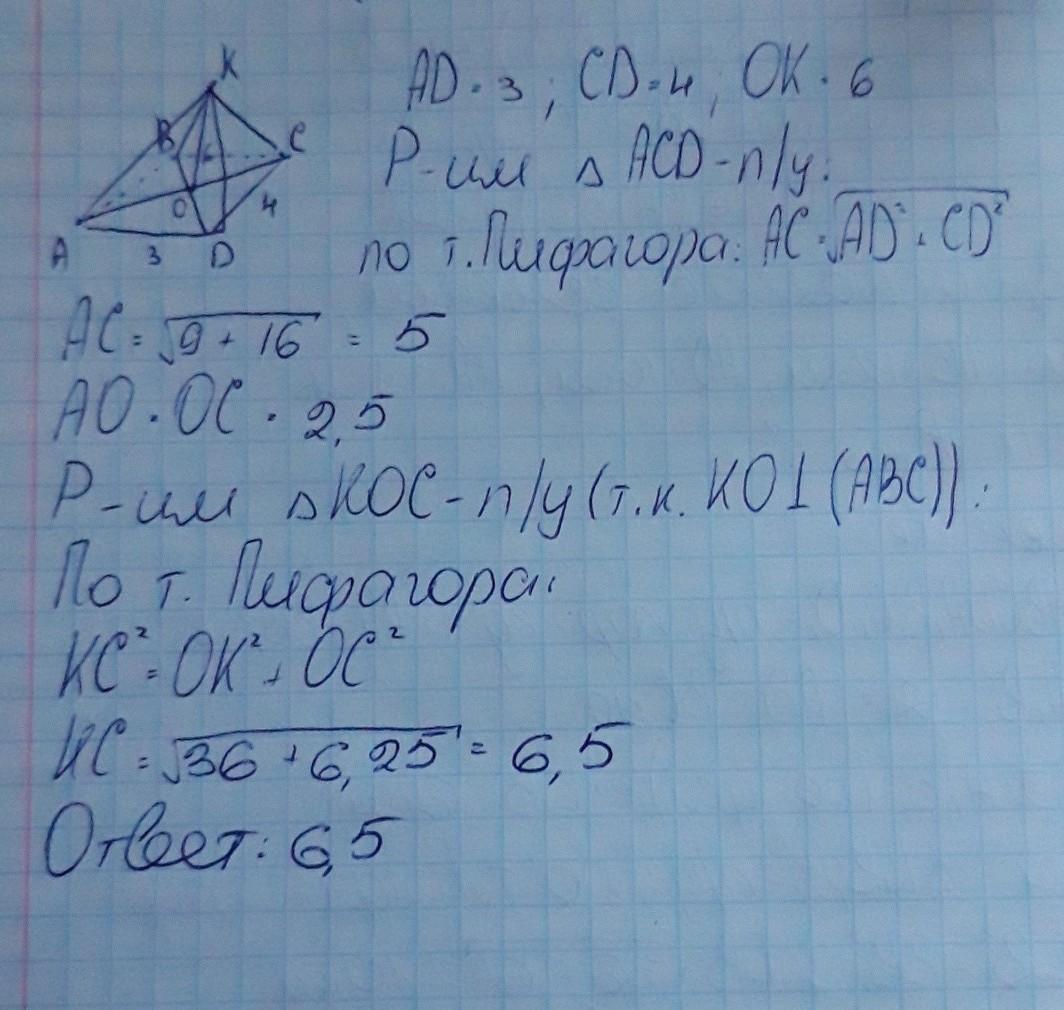 K
B
C
O
4
A
3
D
AD = 3 ; CD = 4 ; OK = 6
Р-им △ ACD - п/у:
по т. Пифагора: AC = √AD² + CD²
AC = √9 + 16 = 5
AO = OC = 2,5
Р-им △ KOC - п/у (т.к. KO⊥(ABC)):
По т. Пифагора:
KC² = OK² + OC²
KC = √36 + 6,25 = 6,5
Ответ: 6,5